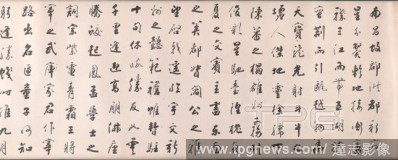 南昌故郡洪都新
星分翼軫地接衡
三江而帶五湖
蠻荊而引甌越物
天寶龍光射牛斗
墟人傑地靈徐孺
陳蕃之榻雄州霧
俊彩星馳臺隍枕
夷之交賓主盡東南
之美都督閻公之
望棨戟遙臨宇文新
州之懿範襜帷暫駐
十旬休暇勝友如雲
千里逢迎高朋滿座
騰蛟起鳳孟學士之
詞宗紫電清霜王將
軍之武庫家君作宰
路出名區童子何知
躬逢勝餞時維九月
www.ipgnews.com
達志影像